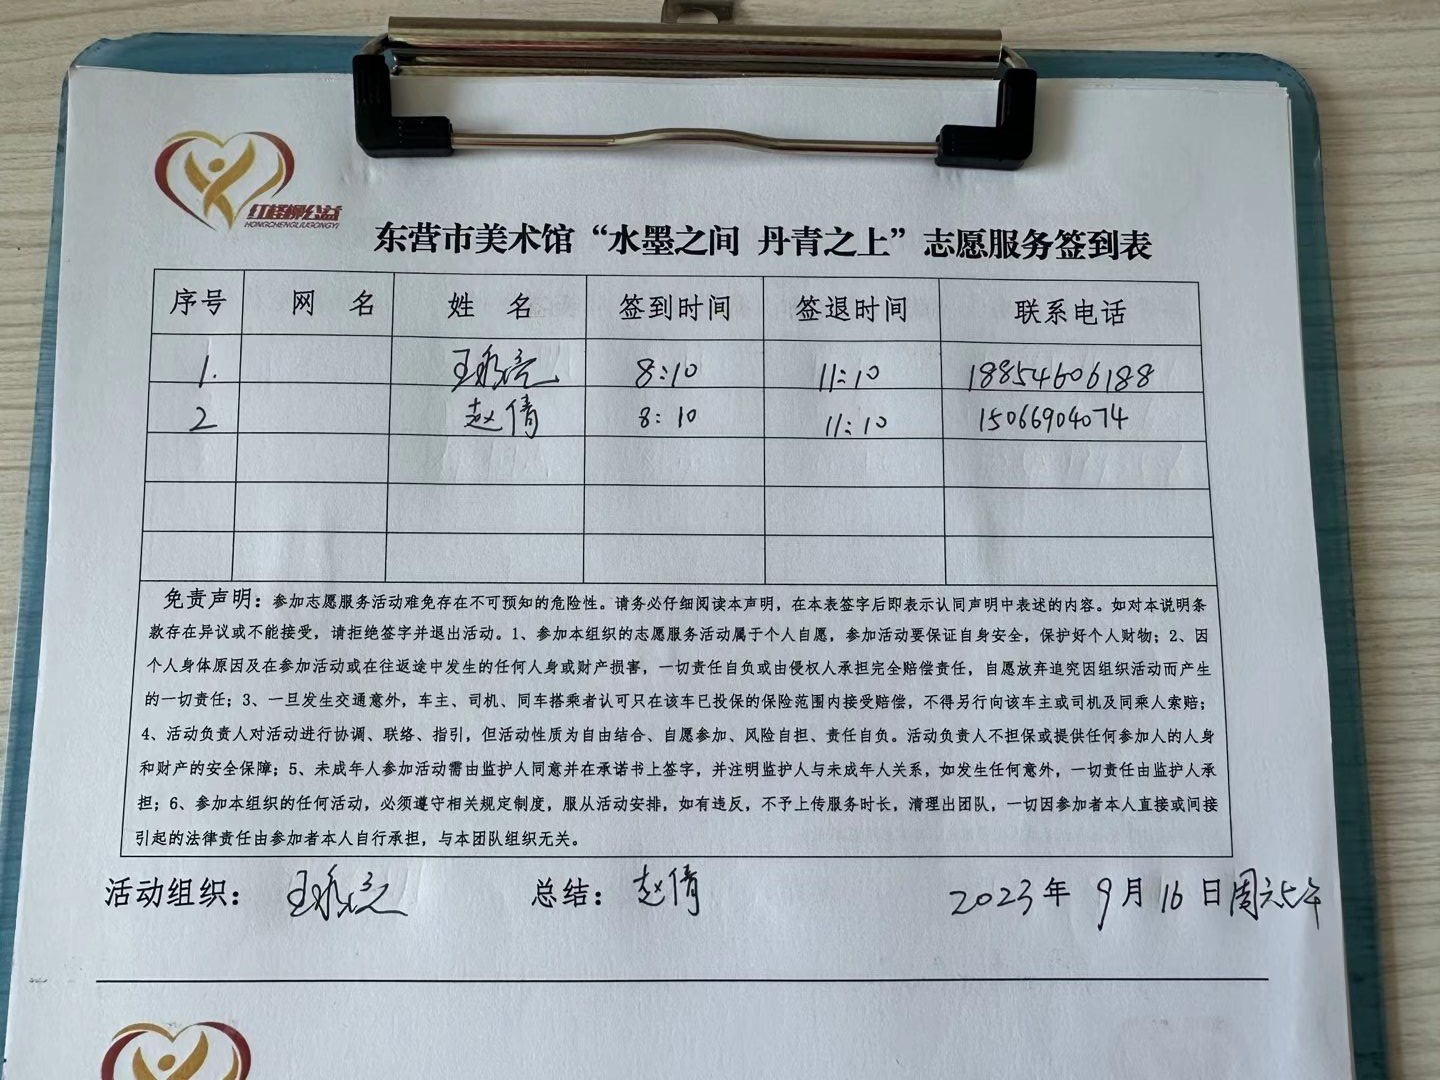 红柽柳公益
HONGCHENGLIUGONGYI
东营市美术馆“水墨之间 丹青之上”志愿服务签到表
序号 网 名 姓 名 签到时间 签退时间 联系电话
1. 王 8:10 11:10 18854606188
2 赵倩 8:10 11:10 15066904074
免责声明：参加志愿服务活动难免存在不可预知的危险性。请务必仔细阅读本声明，在本表签字后即表示认同声明中表述的内容。如对本说明条
款存在异议或不能接受，请拒绝签字并退出活动。1、参加本组织的志愿服务活动属于个人自愿，参加活动要保证自身安全，保护好个人财物；2、因
个人身体原因及在参加活动或在往返途中发生的任何人身或财产损害，一切责任自负或由侵权人承担完全赔偿责任，自愿放弃追究因组织活动而产生
的一切责任；3、一旦发生交通意外，车主、司机、同车搭乘者认可只在该车已投保的保险范围内接受赔偿，不得另行向该车主或司机及同乘人索赔；
4、活动负责人对活动进行协调、联络、指引，但活动性质为自由结合、自愿参加、风险自担、责任自负。活动负责人不担保或提供任何参加人的人身
和财产的安全保障；5、未成年人参加活动需由监护人同意并在承诺书上签字，并注明监护人与未成年人关系，如发生任何意外，一切责任由监护人承
担；6、参加本组织的任何活动，必须遵守相关规定制度，服从活动安排，如有违反，不予上传服务时长，清理出团队，一切因参加者本人直接或间接
引起的法律责任由参加者本人自行承担，与本团队组织无关。
活动组织： 王 总结：赵倩 2023年 9月 16日周六上午